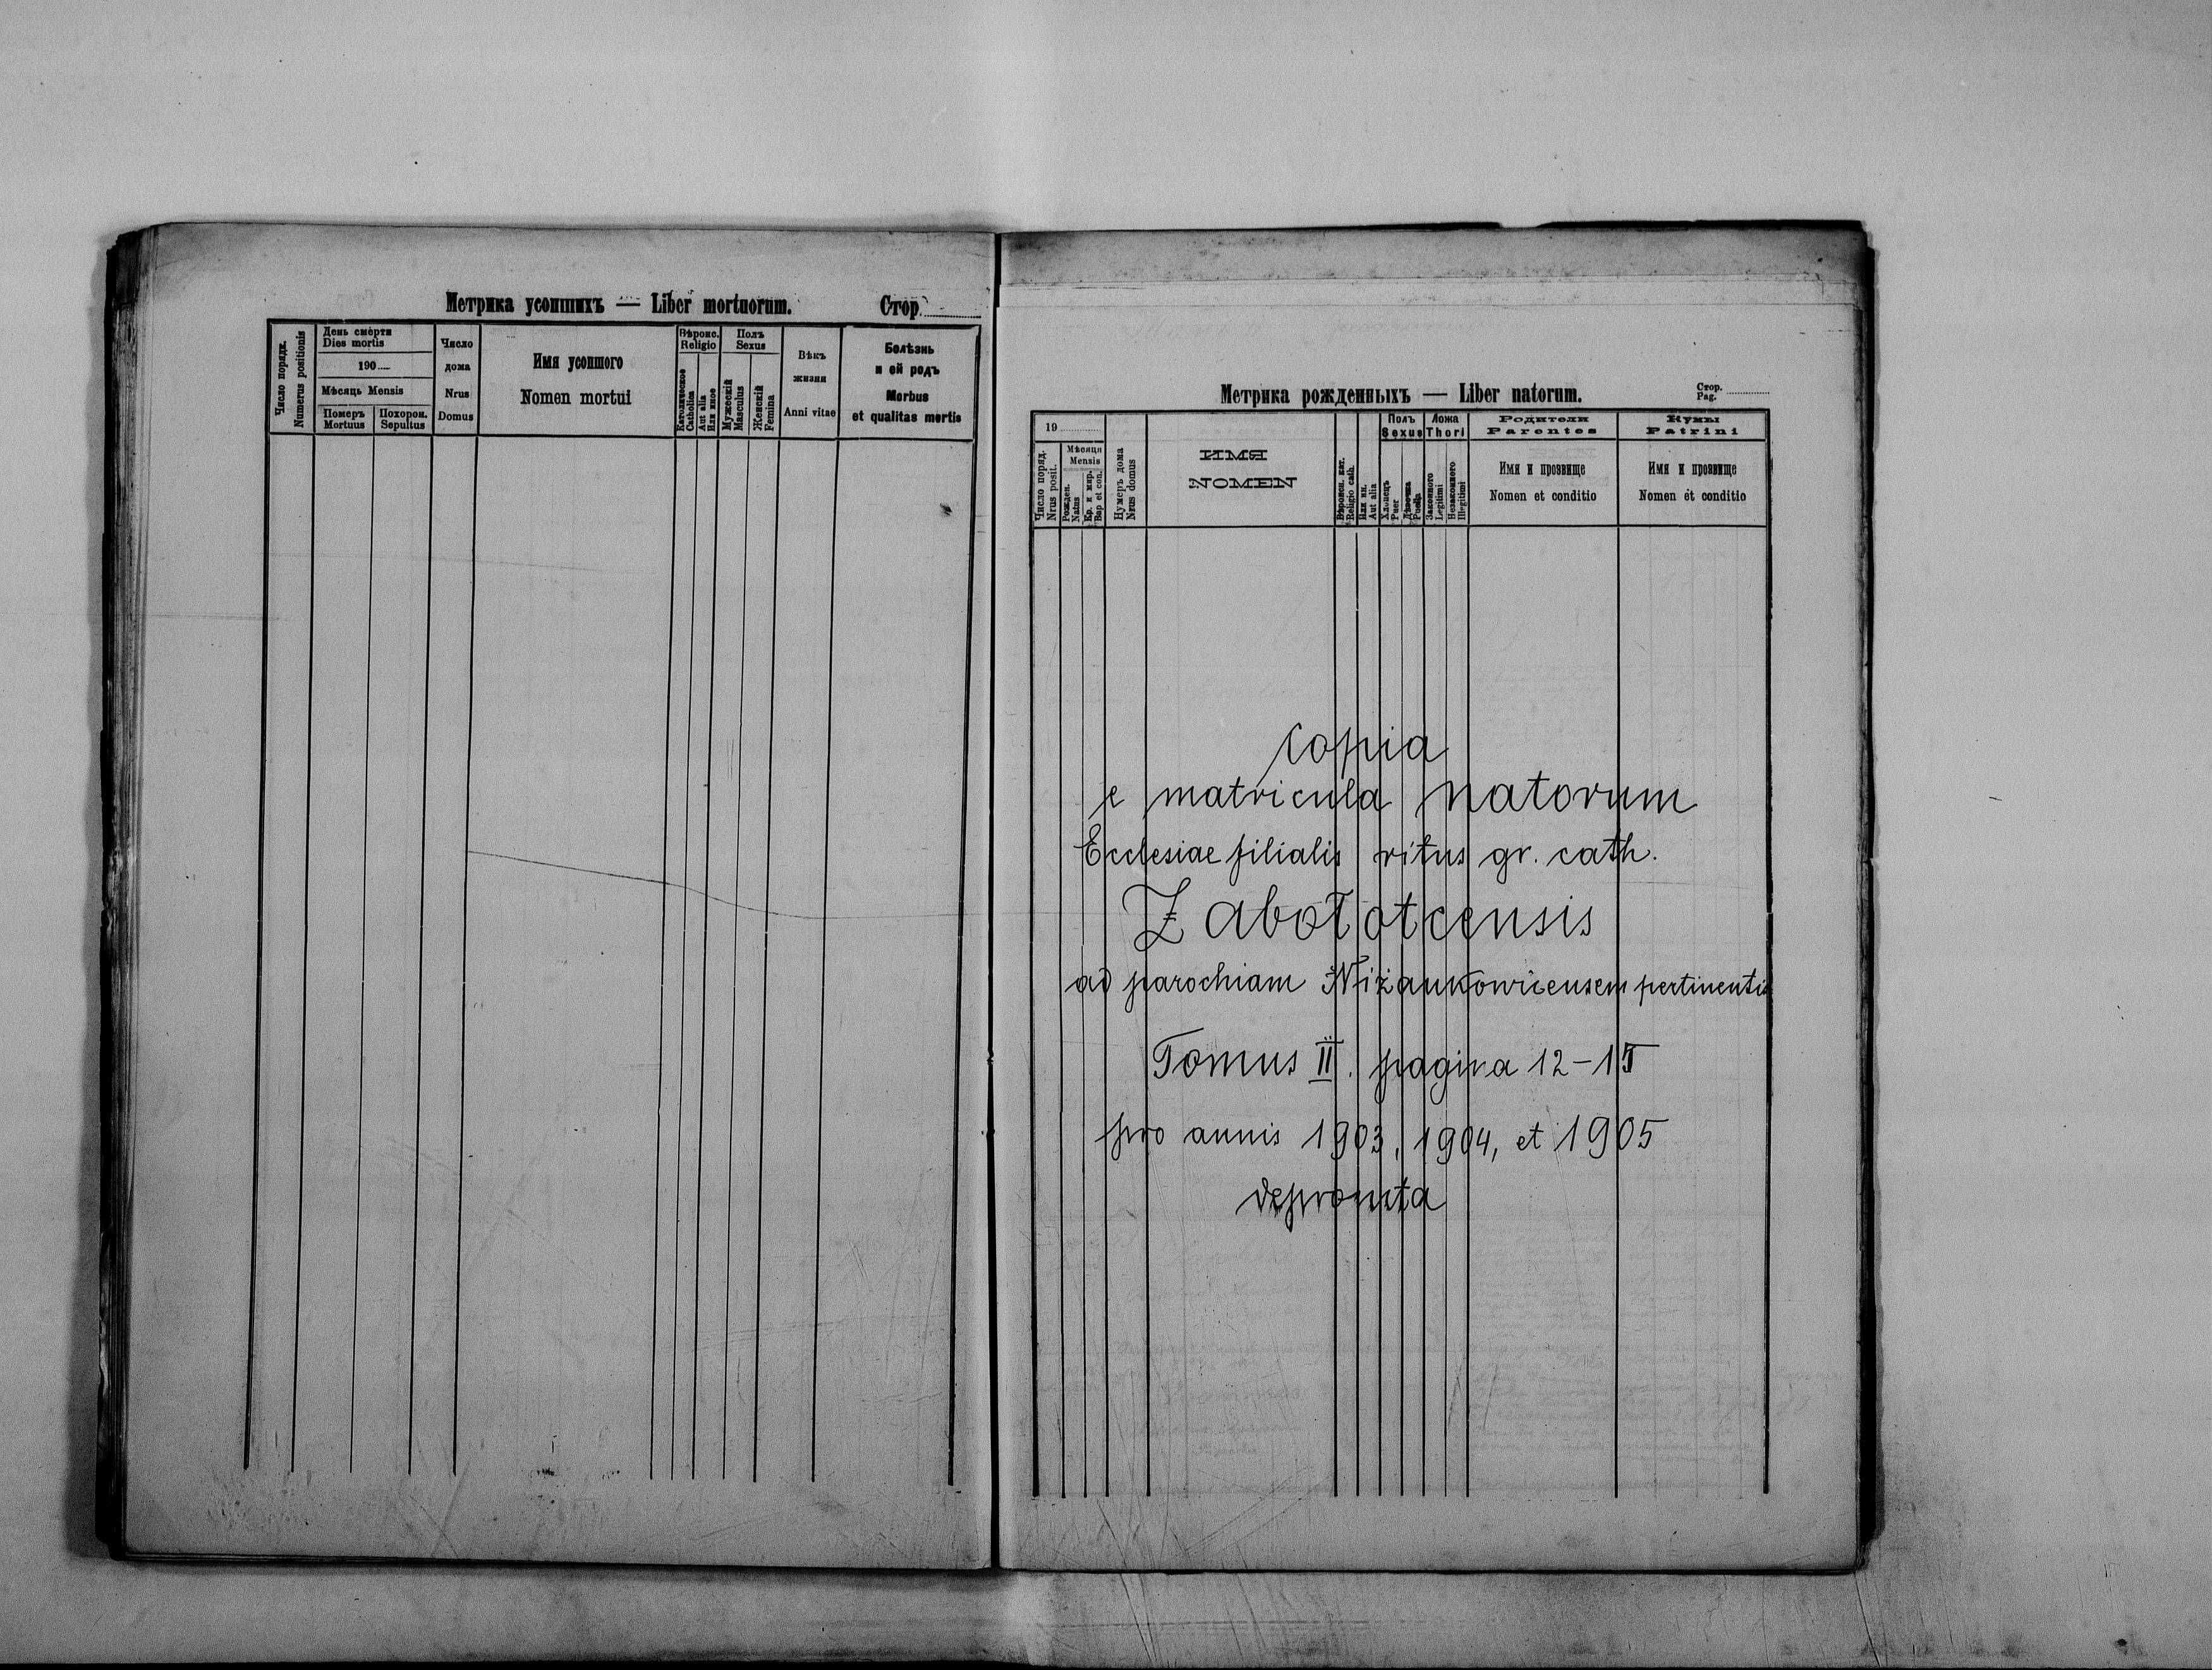 Метрика усопшихъ — Liber mortuorum. Стор.
Число порядк. Numerus positionis
День смерти Dies mortis
190
Мѣсяць Mensis
Померъ Mortuus
Похорон. Sepultus
Число дома Nrus Domus
Имя усопшого
Nomen mortui
Вѣроис. Religio
Католическое Catholica
Aut alia Или иное
Полъ Sexus
Мужескій Masculus
Женскій Femina
Вѣкъ жизни Anni vitae
Болѣзнь
и ей родъ
Morbus
et qualitas mortis
Метрика рожденныхъ — Liber natorum.
Стор. Pag.
19
Число поряд. Nrus posit.
Мѣсяця Mensis
Рожден. Natus
Кр. и мир. Bap et con.
Нумеръ дома Nrus domus
ИМЯ
NOMEN
Вѣроисп. кат. Religio cath.
Или ин. Aut alia
Полъ Sexus
Хлопець Puer
Дѣвочка Puella
Ложа Thori
Законного Legitimi
Незаконного Illegitimi
Родители
Parentes
Имя и прозвище
Nomen et conditio
Кумы
Patrini
Имя и прозвище
Nomen et conditio
Copia
e matricula natorum
Ecclesiae filialis ritus gr. cath.
Zabołotcensis
ad parochiam Niżankowicensem pertinentis
Tomus II. pagina 12-15
pro annis 1903, 1904, et 1905
depromta